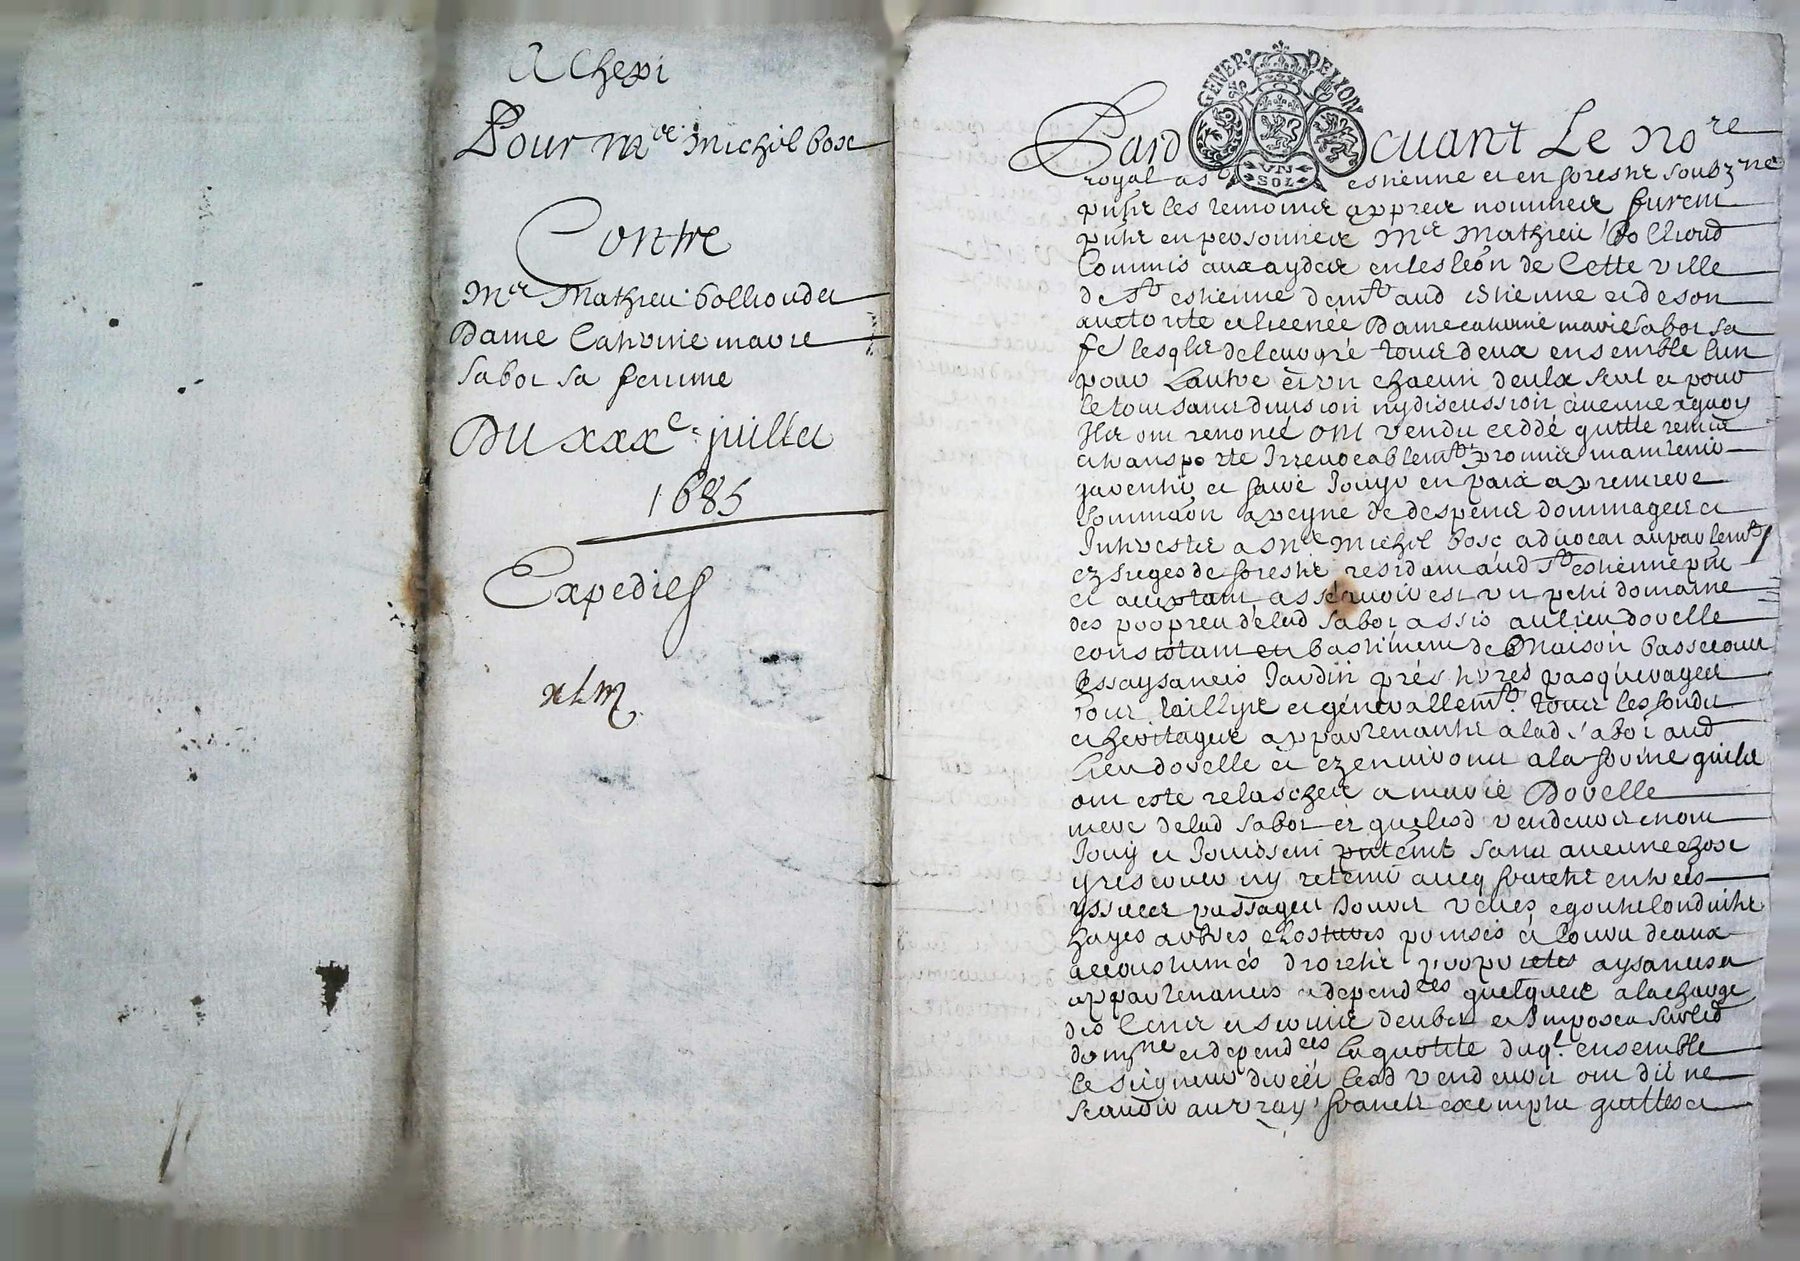 Achept
Pour Mre Michel bosc
Contre
Mre Mathieu bolhoud et
Dame Catherine marie
sabot sa femme
Du xxxe juillet
1685
Expedies
GENER. DE LION
UN
SOL
Pard cuant Le nore
royal a St estienne et en forestz soubzne
pnts les temoins appres nommes furent
pnts en personnes Mre Mathieu bolhoud
Commis aux aydes en lesleon de Cette ville
de St estienne demt aud estienne et de son
auctorite et licenée Dame caterine marie sabot sa
fe lesqls de leur gré tous deux ensemble lun
pour Lautre et un chacun deulx seul et pour
le tout sans division ny discussion a quoy
Ils ont renoncé ont vendu ceddé quitte remis
et transporte Irrevocablemt promis maintenir
garentir et faire Jouyr en paix a premiere
sommaon a peyne de despens dommages et
Interestz a Mre Michel bosc advocat au parlemt
ez sieges de forestz residant aud St estienne pnt
et acceptant assavoir est un petit domaine
des propres de lad sabot assis au lieu dovelle
consistant en bastiment de Maison basse cour
aysances Jardin prés terres pasquerages
bois taillys et generallemt tous les fondz
et heritages appartenantz a lad sabot aud
lieu dovelle et ez environs a la forme quilz
ont esté relaschez a marie Dovelle
mere de lad sabot et que lesd vendeurs en ont
Jouy et Jouissent sans aucune chose
y reserver ny retenir avecq fruictz entrees
yssues passages
hayes arbres clostures prinses et cours deaux
accoustumés droictz proprietes aysances et
appartenances et dependces quelques a la charge
des cens et servis deubz et Imposez sur led
domne et dependces la quotité duql ensemble
le seigneur direct lesd vendeurs ont dit ne
scavoir au vray francz exemptz quittes et